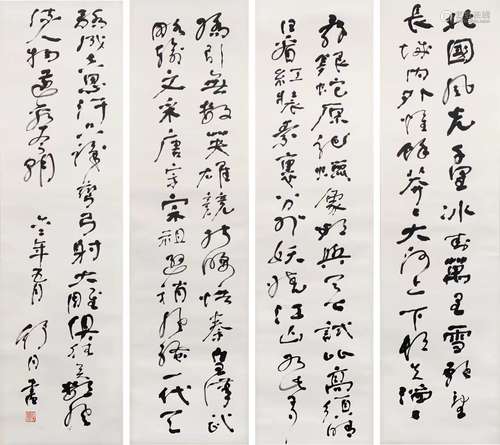 北國風光千里冰封萬里雪飄望
長城內外惟餘莽莽大河上下頓失滔滔
山舞銀蛇原馳蠟象欲與天公試比高須晴
日看紅裝素裹分外妖嬈江山如此多
嬌引無數英雄競折腰惜秦皇漢武
略輸文采唐宗宋祖遜稍風騷一代天
驕成吉思汗只識彎弓射大雕俱往矣數風
流人物還看今朝 年五月
舒同書